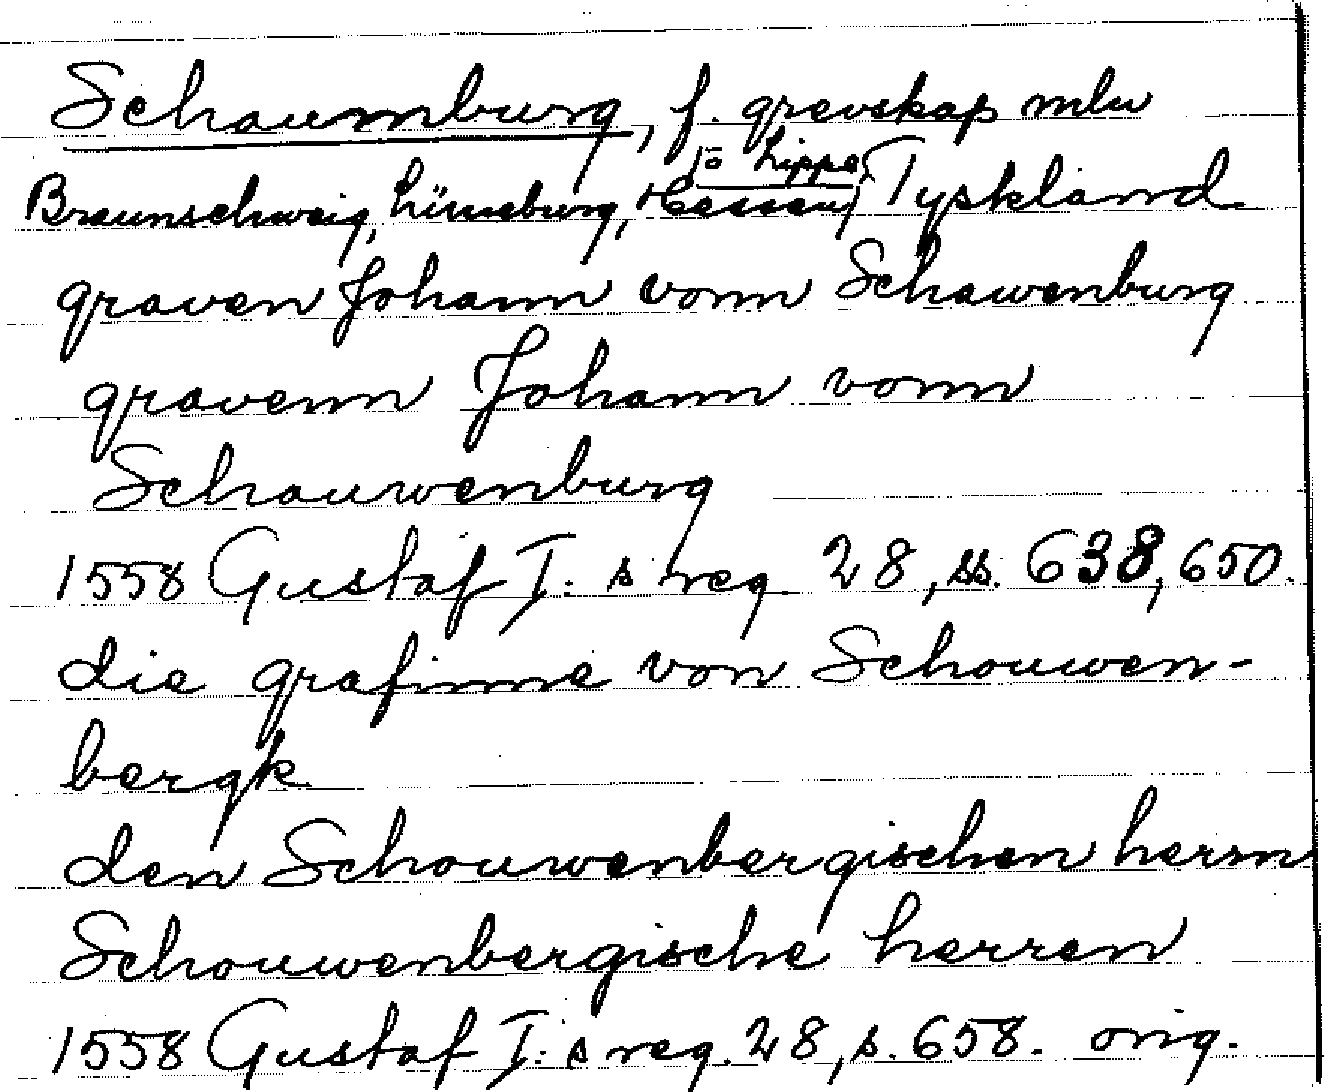 Schaumburg, f. grevskap mlw
o Lippe,
Braunschweig, Lüneburg, Hessen, Tyskland
graven Johann vonn Schawenburg
gravenn Johann vonn
Schauwenburg
1558 Gustaf I:s reg. 28, ss. 638, 650.
die grafinne von Schouwen-
bergk
den Schouwenbergischen herrn
Schouwenbergische herren
1558 Gustaf I:s reg. 28, s. 658. orig.